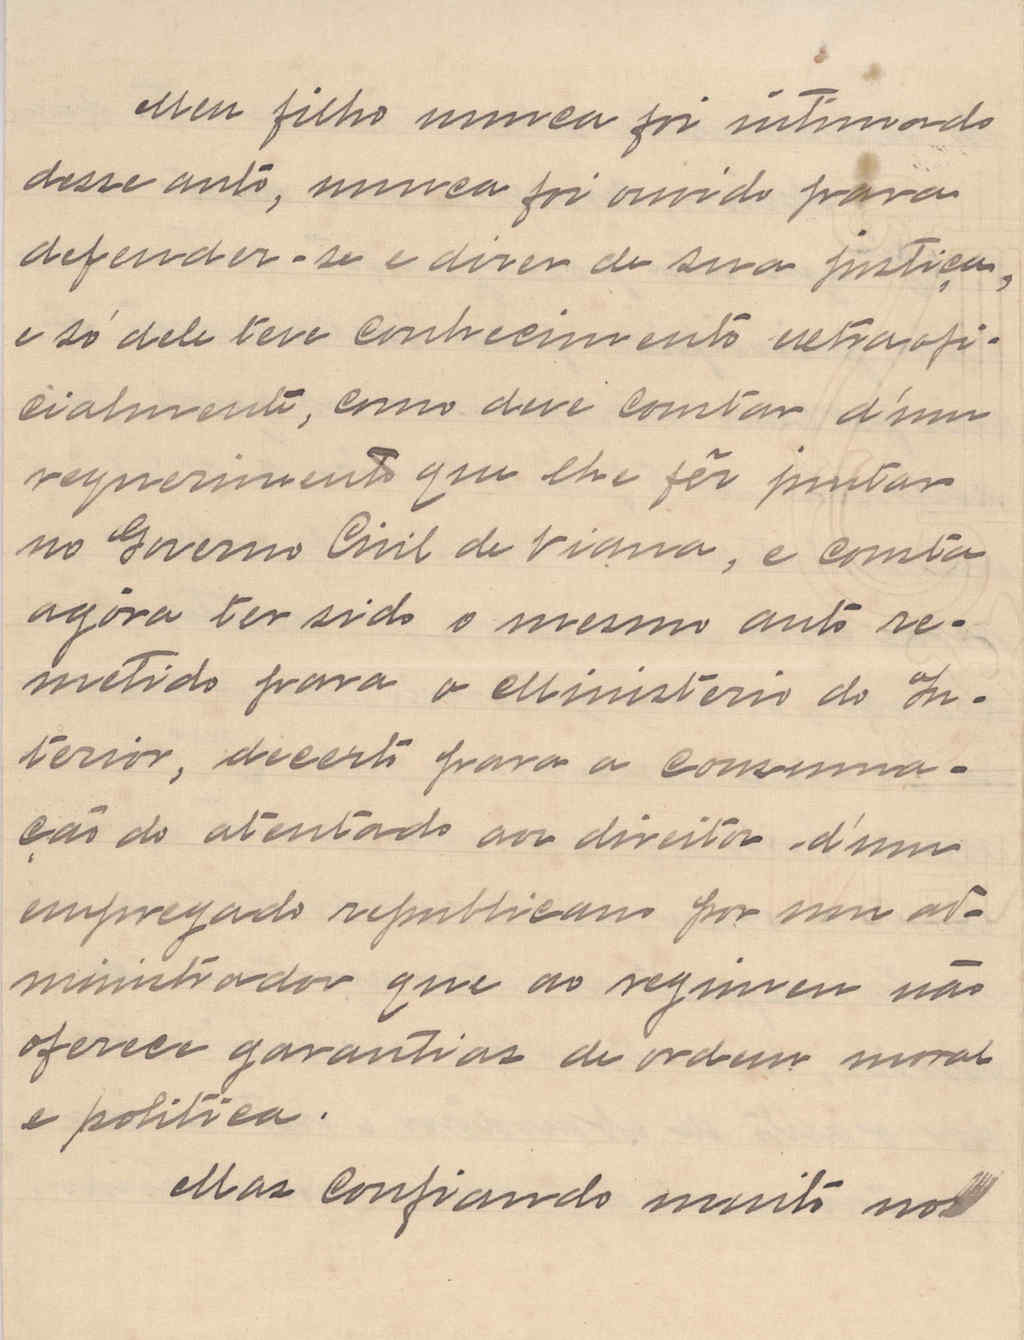 Meu filho nunca foi intimado
desse auto, nunca foi ouvido para
defender-se e dizer de sua justiça,
e só dele teve conhecimento extraofi-
cialmente, como deve constar d'um
requerimento que lhe fêz juntar
no Governo Civil de Viana, e consta
agóra ter sido o mesmo auto re-
metido para o Ministerio do In-
terior, decerto para a consuma-
ção do atentado aos direitos d'um
empregado republicano por um ad-
ministrador que ao regimen não
oferece garantias de ordem moral
e politica.
Mas confiando muito no